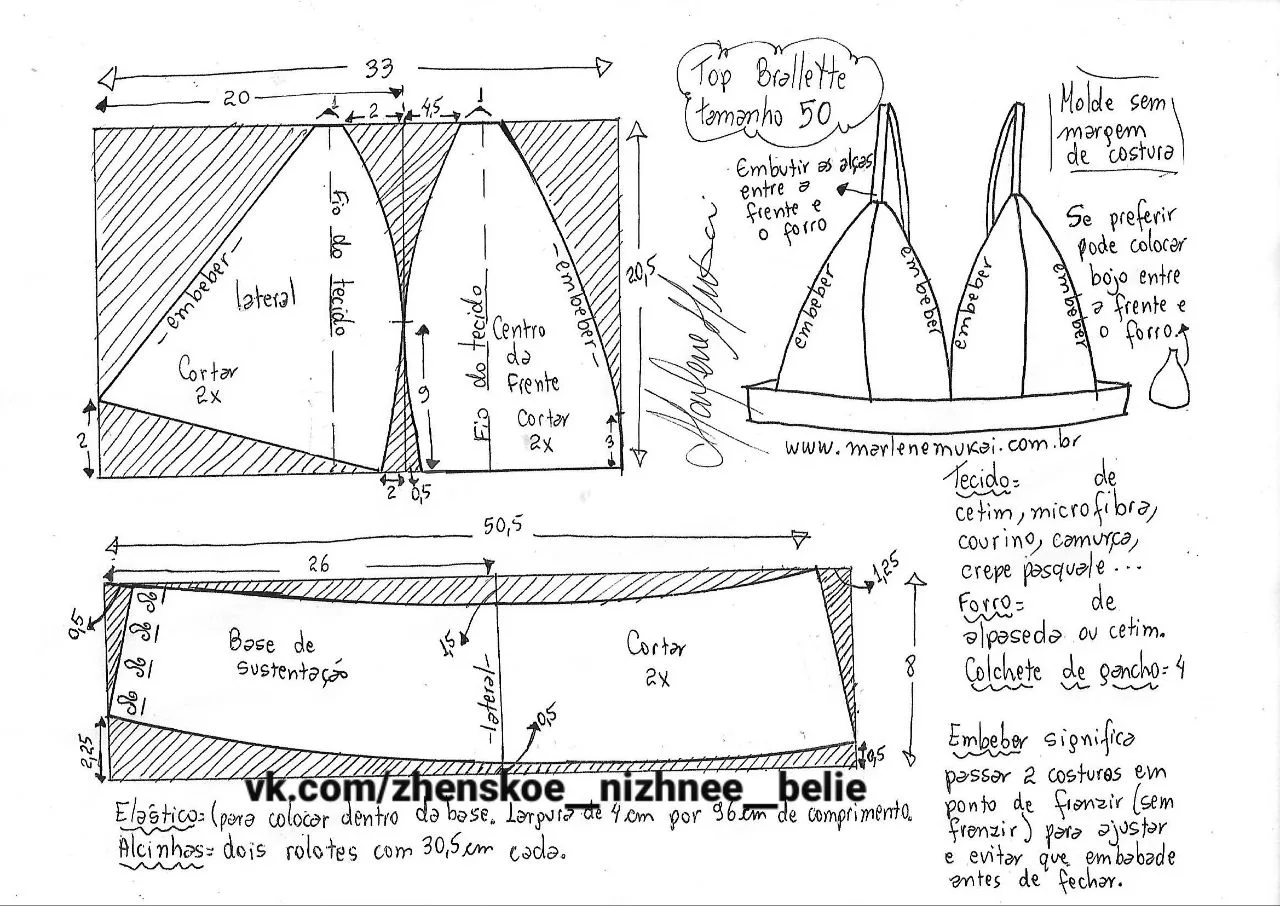 33
20
1
2
4,5
1
Fio do tecido
Fio do tecido
- embeber -
lateral
Cortar
2x
- embeber -
Centro
da
Frente
Cortar
2x
20,5
9
2
3
2
0,5
Top Brallette
tamanho 50
Embutir as alças
entre a
frente e
o forro
Molde sem
margem
de costura
Se preferir
pode colocar
bojo entre
a frente e
o forro.
embeber
embeber
embeber
embeber
Marlene Mukai
www.marlenemukai.com.br
Tecido= de
cetim, microfibra,
courino, camurça,
crepe pasquale...
Forro= de
alpaseda ou cetim.
Colchete de gancho= 4
Embeber significa
passar 2 costuras em
ponto de franzir (sem
franzir) para ajustar
e evitar que embabade
antes de fechar.
50,5
26
1,25
0,5
1,5
Base de
sustentação
-lateral-
Cortar
2x
8
0,5
2,25
0,5
vk.com/zhenskoe__nizhnee__belie
Elástico= (para colocar dentro da base. Largura de 4 cm por 96 cm de comprimento.
Alcinhas= dois rolotes com 30,5 cm cada.